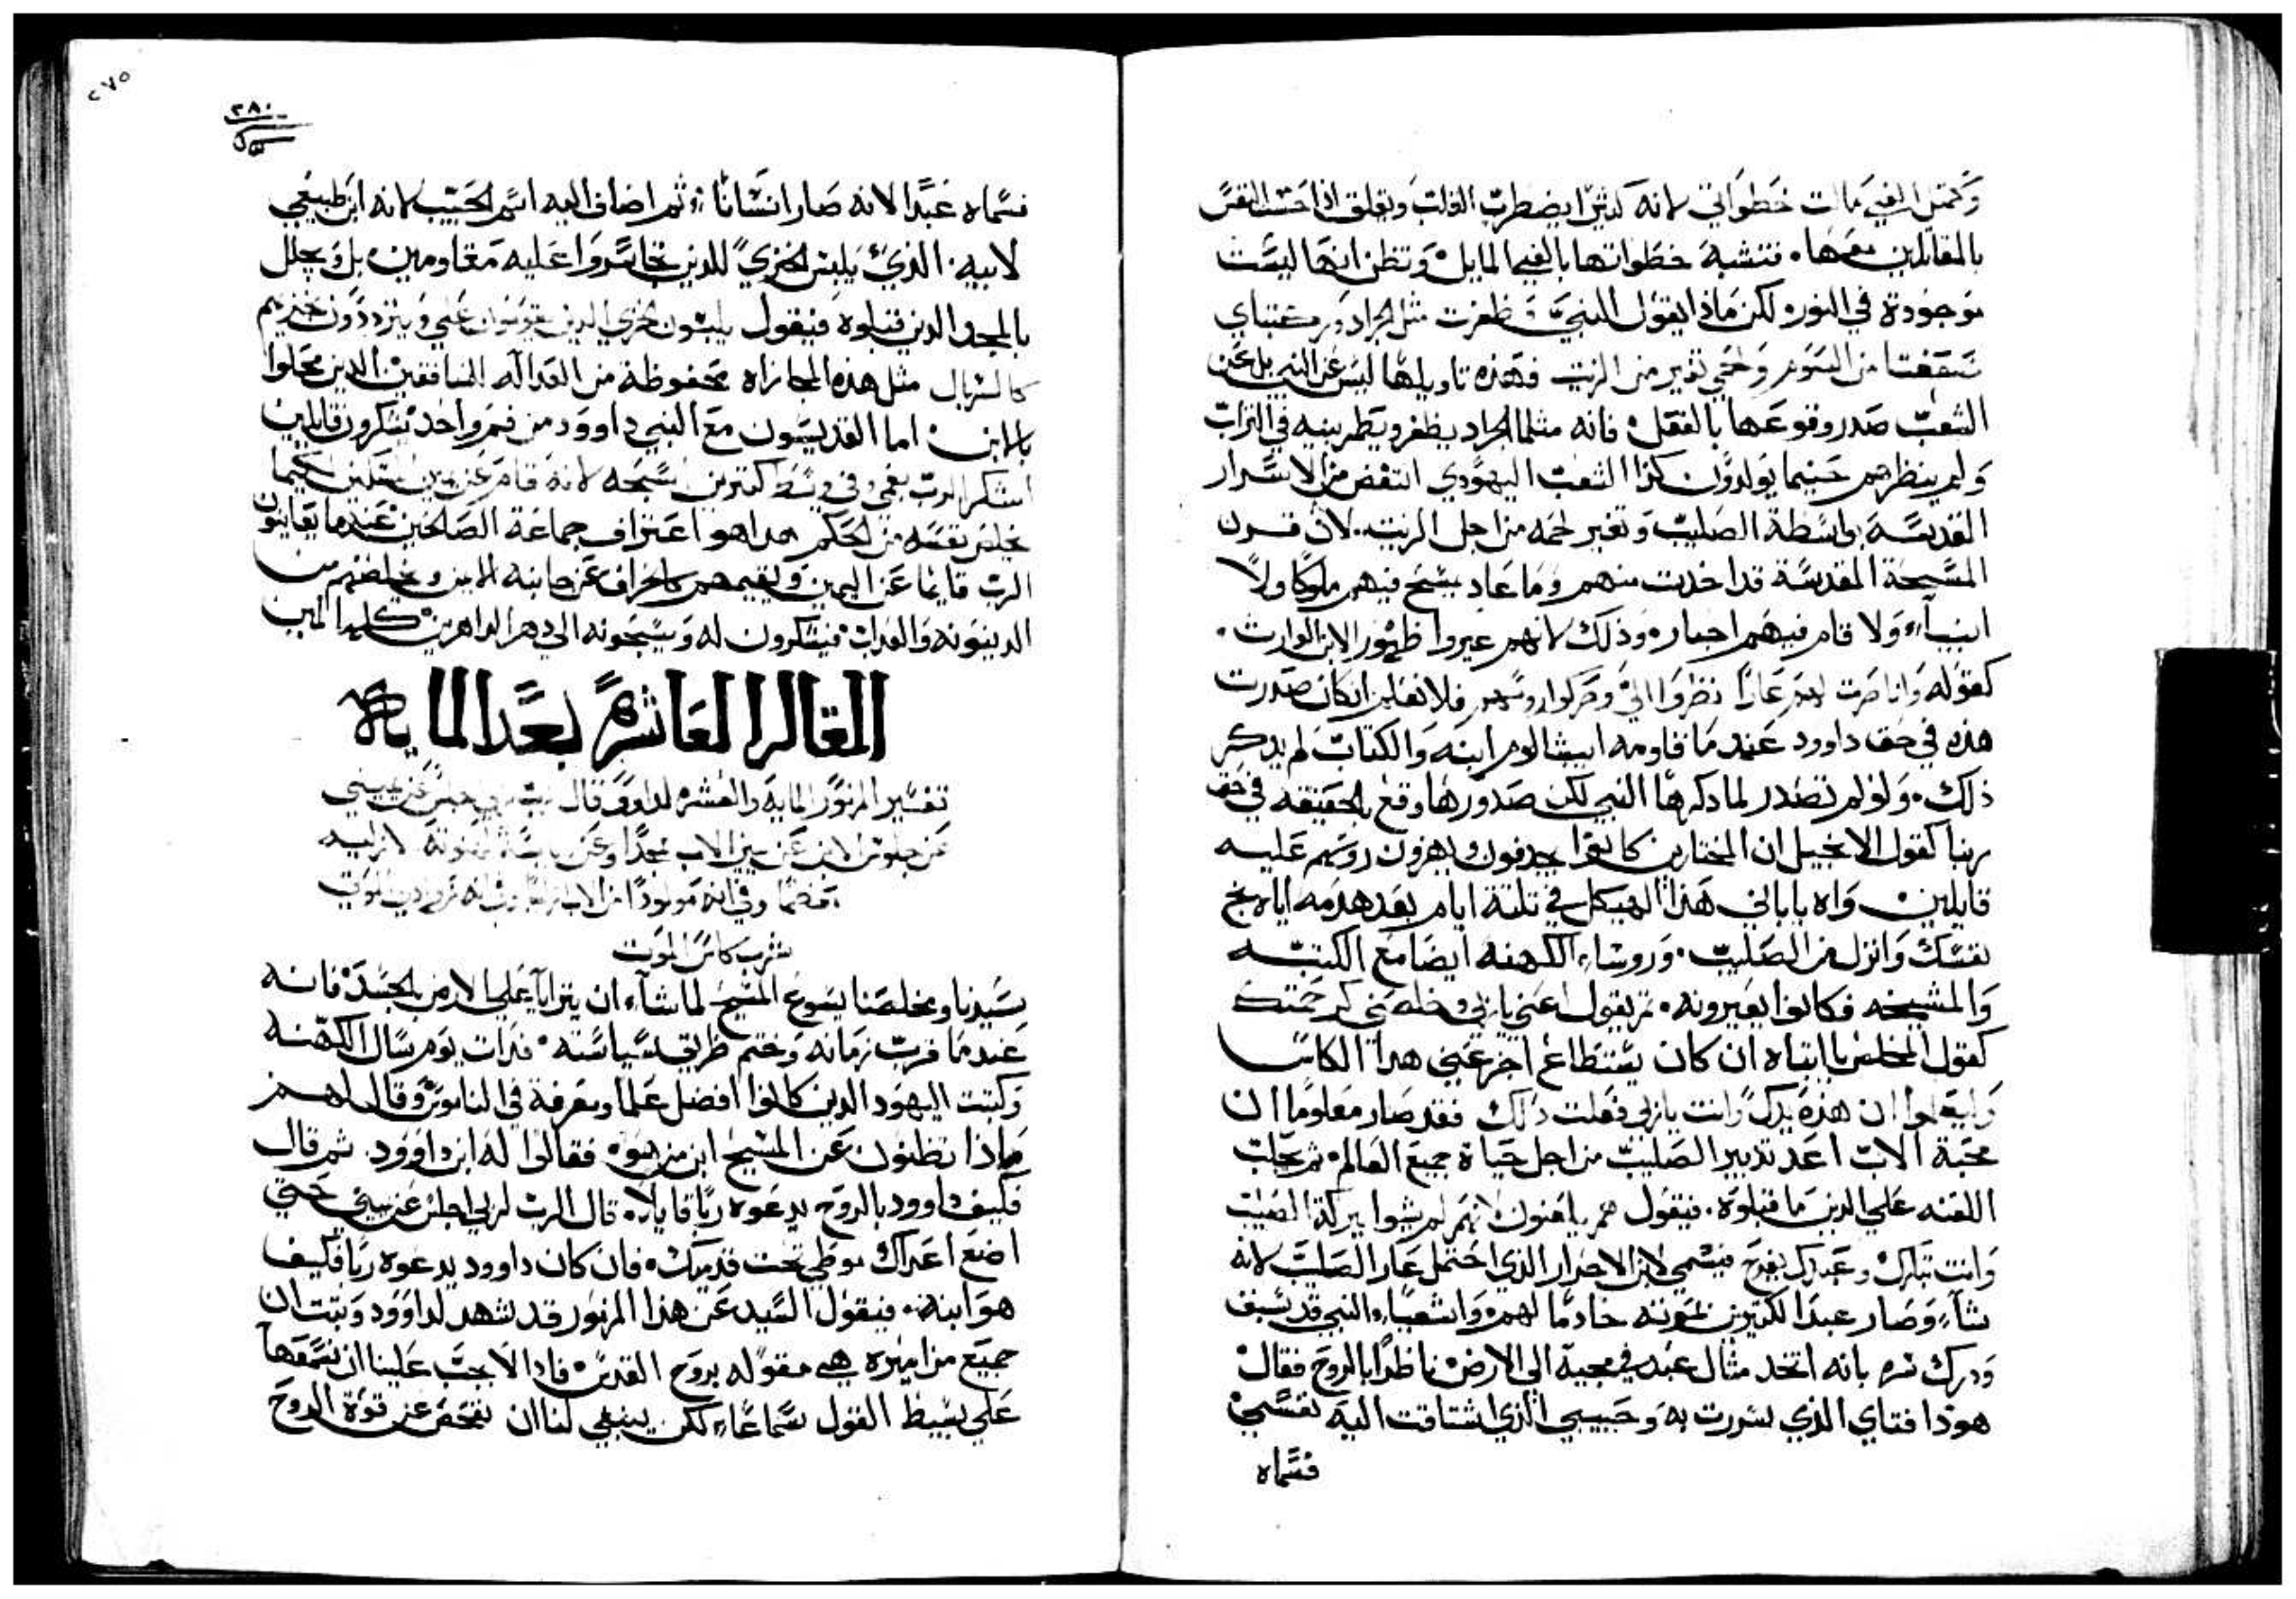 وكمثل الفي مالت خطواتي لانه كثيرا يضطرب القلب ويقلق اذا احست النفس
بالمقابلين معها. فتشبه خطواتها بالفي المايل وتظن انها ليست
موجودة في النور. لكن ماذا يقول النبي وظفرت مثل الجراد وركبتاي
ضعفتا من الصوم ولحمي تغير من الزيت فهذه تاويلها ليس عن النبي بل عن
الشعب صدر وقوعها بالفعل. فانه مثلما الجراد يظفر ويطمر بنيه في التراب
ولم ينظرهم حينما يولدون كذا الشعب اليهودي انتفض من الاسرار
القديسة بواسطة الصليب وتغير لحمه من اجل الزيت. لان قرن
المسيحة المقدسة قد اخذت منهم وما عاد يمسح فيهم ملوكا ولا
انبياء ولا قام فيهم احبار. وذلك لانهم عيروا ظهور الابن الوارث.
كقوله وانا صرت لهم عارا نظروا الي وحركوا روسهم فلا نعلم ان كان صدرت
هذه في حق داوود عندما قاومه ابيشالوم ابنه والكتاب لم يذكر
ذلك. ولو لم تصدر لما ذكرها النبي لكن صدورها وقع بالحقيقة في حق
ربنا كقول الانجيل ان المجتازين كانوا يجدفون ويهزون روسهم عليه
قايلين واه يا باني هذا الهيكل في ثلثة ايام بعد هدمه اياه نج
نفسك وانزل من الصليب. وروساء الكهنه ايضا مع الكتبه
والمشيخه فكانوا يعيرونه. ثم يقول اعني يا ربي وخلصني كرحمتك
كقول المخلص يا ابتاه ان كان يستطاع اجز عني هدا الكاس
وليعلموا ان هذه يدك وانت يا ربي فعلت ذلك فقد صار معلوما ان
محبة الاب اعد تدبير الصليب من اجل حياة جميع العالم. ثم يجلب
اللعنه على الذين ما قبلوه. فيقول هم يلعنون لانهم لم يشوا بركة الصليب
وانت تبارك وعبدك يفرح فيسمي لابن الاحرار الذي احتمل عار الصليب لانه
شاء وصار عبدا لكثيرين لمعونته خادما لهم واشعياء النبي قد سبق
ودرك سره بانه اتخد مثال عبد في مجيه الى الارض ناظرا بالروح فقال
هودا فتاي الذي سررت به وحبيبي الذي اشتاقت اليه نفسي
فسماه
٢٧٥
٢٨٠
فسماه عبدا لانه صار انسانا. ثم اضاف اليه اسم الحبيب لانه ابن طبيعي
لابيه. الذي يلبس الخزي للذين تحاسروا عليه مقاومين بل ويجلل
بالمجد الدين قبلوه فيقول يلبسون الخزي الذين يتوبون علي ويتزددون خزيهم
كالسربال مثل هذه المجازاه محفوظة من العداله للمنافقين الذين جحلوا
بالابن. اما القديسون مع النبي داوود من فم واحد يشكرون قايلين
اشكر الرب بفمي وفي وسط كثيرين اسبحه لانه قام عن يمين المسكين كيما
يخلص نفسه من الحكم هدا هو اعتراف جماعة الصالحين عندما يعاينون
الرب قايما عن اليمين ويقيمهم كالخراف عن جانبه الايمن ويخلصهم من
الدينونه والعداب فيشكرون له ويسبحونه الى دهر الداهرين كلها امين
المقالة العاشرة بعد الماية
تفسير المزمور الماية والعشره لداوود قال الرب لربي اجلس عن يميني
عن جلوس الابن عن يمين الاب مجدا وعن
وفي انه مولودا من الاب
شرب كاس الموت
سيدنا ومخلصنا يسوع المسيح لما شاء ان يترايا على الارض بالجسد فانه
عندما قرب زمانه وختم طريق سياسته. فدات يوم سال الكهنه
وكتبت اليهود الذين كانوا افضل علما ومعرفة في الناموس وقال لهم
ماذا تظنون عن المسيح ابن من هو. فقالوا له ابن داوود. ثم قال
فكيف داوود بالروح يدعوه ربا قايلا. قال الرب لربي اجلس عن يميني حتى
اضع اعداك موطي تحت قدميك. فان كان داوود يدعوه ربا فكيف
هو ابنه. فيقول السيد عن هذا المزمور قد شهد لداوود وثبت ان
جميع مزاميره هي مقوله بروح القدس فادا لا يجب علينا ان نسمعها
علي بسيط القول سماعا. لكن ينبغي لنا ان نفحص عن قوة الروح